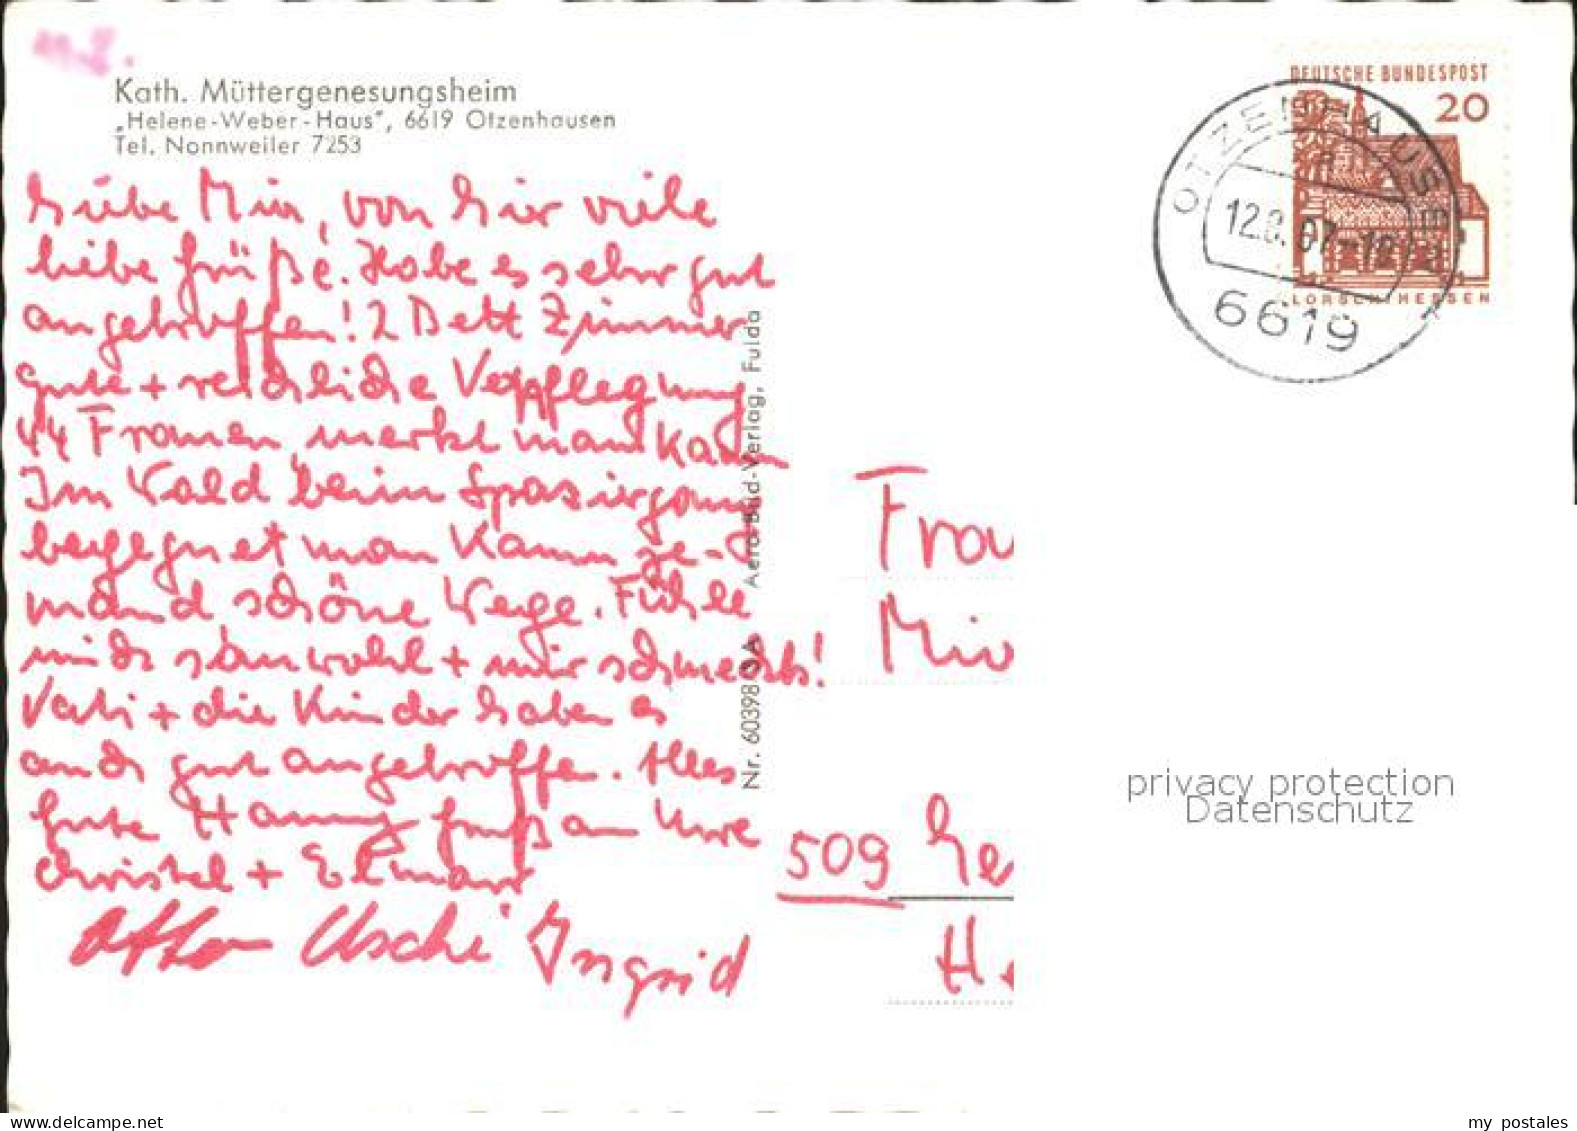 Kath. Müttergenesungsheim
„Helene-Weber-Haus", 6619 Otzenhausen
Tel. Nonnweiler 7253
Liebe Mia, von hier viele
liebe Grüße. Habe es sehr gut
angetroffen! 2 Bett Zimmer
gute + reichliche Verpflegung
44 Frauen, merkt man kaum
Im Wald beim Spaziergang
begegnet man kaum je-
mand schöne Wege. Fühle
mich sauwohl + mir schmeckts!
Vati + die Kinder haben es
auch gut angetroffen. Alles
Gute Hanny Gruß an Uwe
Christel + Elmar
Uschi Ingrid
Nr. 60398 Aero-Bild-Verlag, Fulda
DEUTSCHE BUNDESPOST
20
LORSCH/HESSEN
OTZENHAUSEN
6619
Frau
509
privacy protection
Datenschutz
my postales